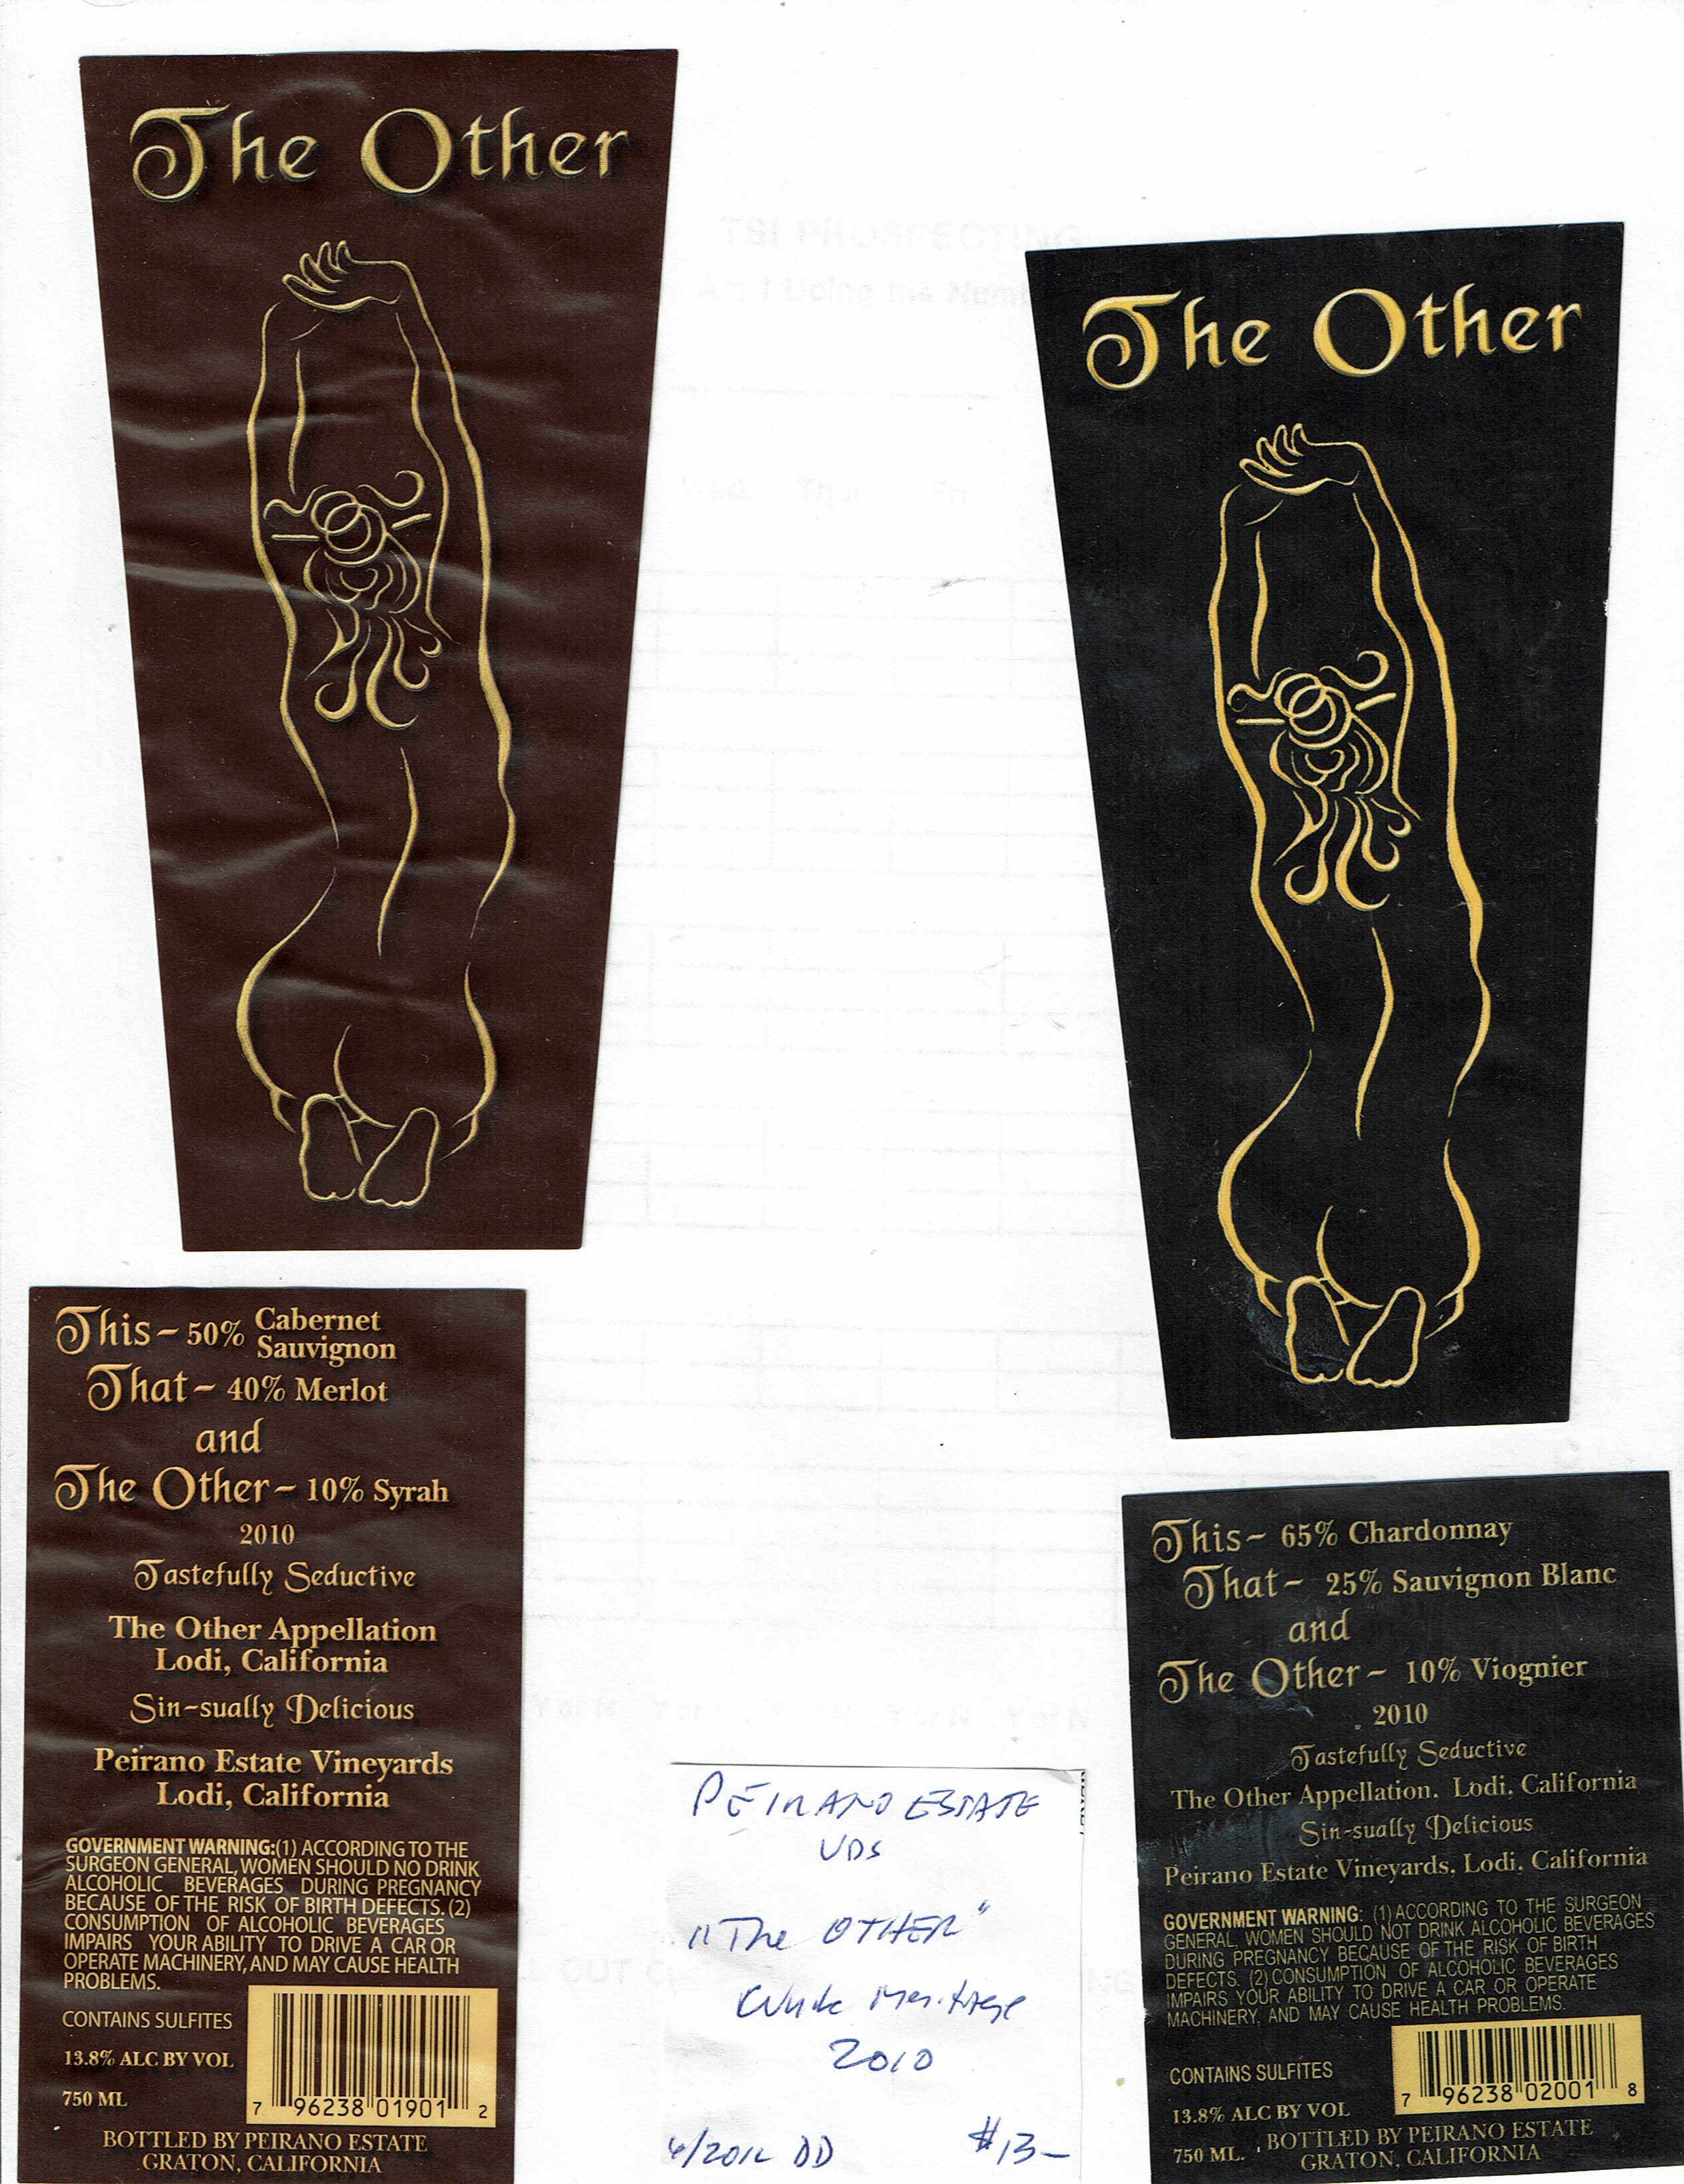 The Other
The Other
TSI PROSPECTING
Am I Doing the Num
Wed. Thur Fri
This ~ 50% Cabernet
Sauvignon
That ~ 40% Merlot
and
The Other ~ 10% Syrah
2010
Tastefully Seductive
The Other Appellation
Lodi, California
Sin-sually Delicious
Peirano Estate Vineyards
Lodi, California
GOVERNMENT WARNING:(1) ACCORDING TO THE
SURGEON GENERAL, WOMEN SHOULD NO DRINK
ALCOHOLIC BEVERAGES DURING PREGNANCY
BECAUSE OF THE RISK OF BIRTH DEFECTS. (2)
CONSUMPTION OF ALCOHOLIC BEVERAGES
IMPAIRS YOUR ABILITY TO DRIVE A CAR OR
OPERATE MACHINERY, AND MAY CAUSE HEALTH
PROBLEMS.
CONTAINS SULFITES
13.8% ALC BY VOL
750 ML
7 96238 01901 2
BOTTLED BY PEIRANO ESTATE
GRATON, CALIFORNIA
This ~ 65% Chardonnay
That ~ 25% Sauvignon Blanc
and
The Other ~ 10% Viognier
2010
Tastefully Seductive
The Other Appellation, Lodi, California
Sin-sually Delicious
Peirano Estate Vineyards, Lodi, California
GOVERNMENT WARNING: (1) ACCORDING TO THE SURGEON
GENERAL, WOMEN SHOULD NOT DRINK ALCOHOLIC BEVERAGES
DURING PREGNANCY BECAUSE OF THE RISK OF BIRTH
DEFECTS. (2) CONSUMPTION OF ALCOHOLIC BEVERAGES
IMPAIRS YOUR ABILITY TO DRIVE A CAR OR OPERATE
MACHINERY, AND MAY CAUSE HEALTH PROBLEMS.
CONTAINS SULFITES
13.8% ALC BY VOL
750 ML.
7 96238 02001 8
BOTTLED BY PEIRANO ESTATE
GRATON, CALIFORNIA
Y or N Y or N Y or N Y or N
PEIRANO ESTATE
VDS
"The OTHER"
White Meritage
2010
6/2012 DD $13-